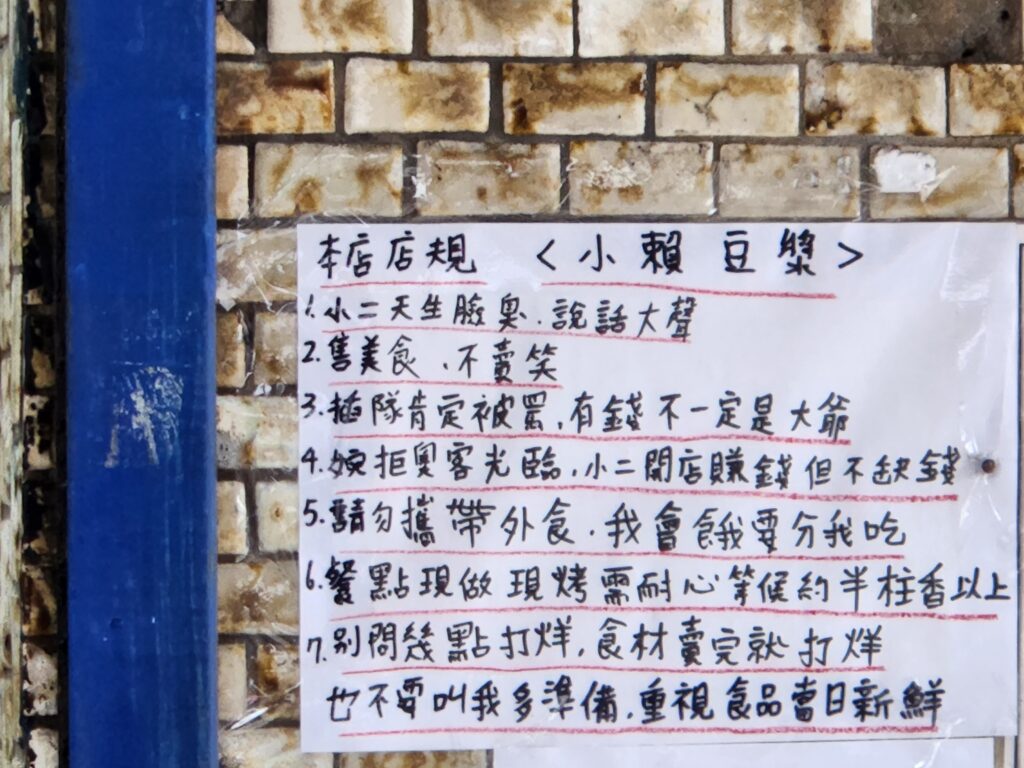 本店店規 <小賴豆漿>
1.小二天生臉臭.說話大聲
2.售美食.不賣笑
3.插隊肯定被罵,有錢不一定是大爺
4.婉拒奧客光臨.小二開店賺錢但不缺錢
5.請勿攜帶外食.我會餓我要分我吃
6.餐點現做現烤需耐心等候約半柱香以上
7.別問幾點打烊,食材賣完就打烊
也不要叫我多準備.重視食品當日新鮮